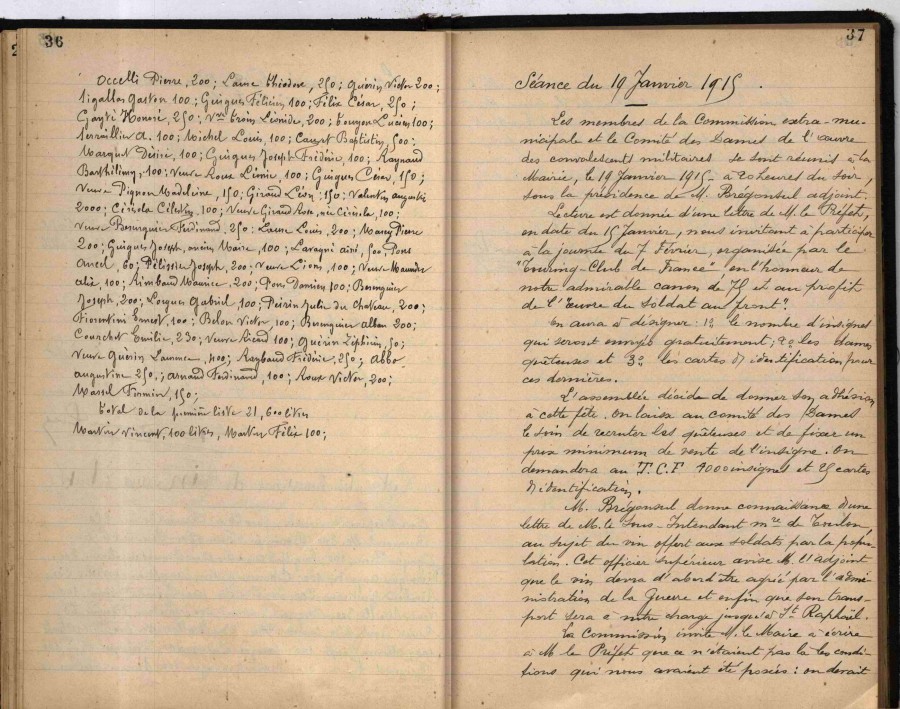 36
Occelli Pierre, 200; Laure Théodore, 250; Guérin Victor 200;
Sigallas Gaston 100; Guigues Félicien 100; Félix César, 250;
Honoré, 250; Vve Léonide, 200; Lucien 100;
A. 100; Michel Louis, 100; Baptistin, 500;
Marquet Désiré, 100; Guigues Joseph Frédéric, 100; Raynaud
Barthélemy, 100; Veuve Roux Limie, 100; Guigues César, 150;
Veuve Pignon Madeleine, 150; Giraud Léon, 150; Valentin Augustin
2000; Célestin, 100; Veuve Giraud née 100;
Veuve Ferdinand, 250; Laure Louis, 200; Pierre
200; Guigues Joseph, ancien Maire, 100; Lavagne aîné, 50; Pons
Ancel, 60; Pélissier Joseph, 200; Veuve Lions, 100; Veuve
100; Rimbaud Maurice, 200; Pons Damien 100;
Joseph, 200; Lorgues Gabriel 100; Peirin Julie du Chateau, 200;
Fiorentini Ernest, 100; Belon Victor, 100; Alban 200;
Courchet Emilie, 230; Veuve Ricard 100; Guérin Zéphirin, 50;
Veuve Guérin 400; Raybaud Frédéric, 250; Abbo
Augustine 250; Arnaud Ferdinand, 100; Roux Victor, 200;
Massel Firmin, 150;
Total de la première liste 21,600 litres
Martin Vincent, 100 litres, Martin Félix 100;
37
Séance du 19 Janvier 1915.
Les membres de la Commission extra-mu-
nicipale et le Comité des Dames de l'œuvre
des convalescents militaires se sont réunis à la
Mairie, le 19 Janvier 1915 à 20 heures du soir,
sous la présidence de M. Brégonsul adjoint.
Lecture est donnée d'une lettre de M. le Préfet,
en date du 15 Janvier, nous invitant à participer
à la journée du 7 Février, organisée par le
"Touring-Club de France" en l'honneur de
notre admirable canon de 75 et au profit
de l'"Œuvre du Soldat au front".
On aura à désigner: 1º le nombre d'insignes
qui seront envoyés gratuitement; 2º les dames
quêteuses et 3º les cartes d'identification pour
ces dernières.
L'assemblée décide de donner son adhésion
à cette fête. On laisse au comité des Dames
le soin de recruter les quêteuses et de fixer un
prix minimum de vente de l'insigne. On
demandera au T.C.F 4000 insignes et 25 cartes
d'identification.
M. Brégonsul donne connaissance d'une
lettre de M. le Sous-Intendant mre de Toulon,
au sujet du vin offert aux soldats par la popu-
lation. Cet officier supérieur avise M. l'adjoint
que le vin devra d'abord être agréé par l'admi-
nistration de la Guerre et enfin que son trans-
port sera à notre charge jusqu'à St Raphaël.
La Commission invite M. le Maire à écrire
à M. le Préfet que ce n'étaient pas là les condi-
tions qui nous avaient été posées: on devait